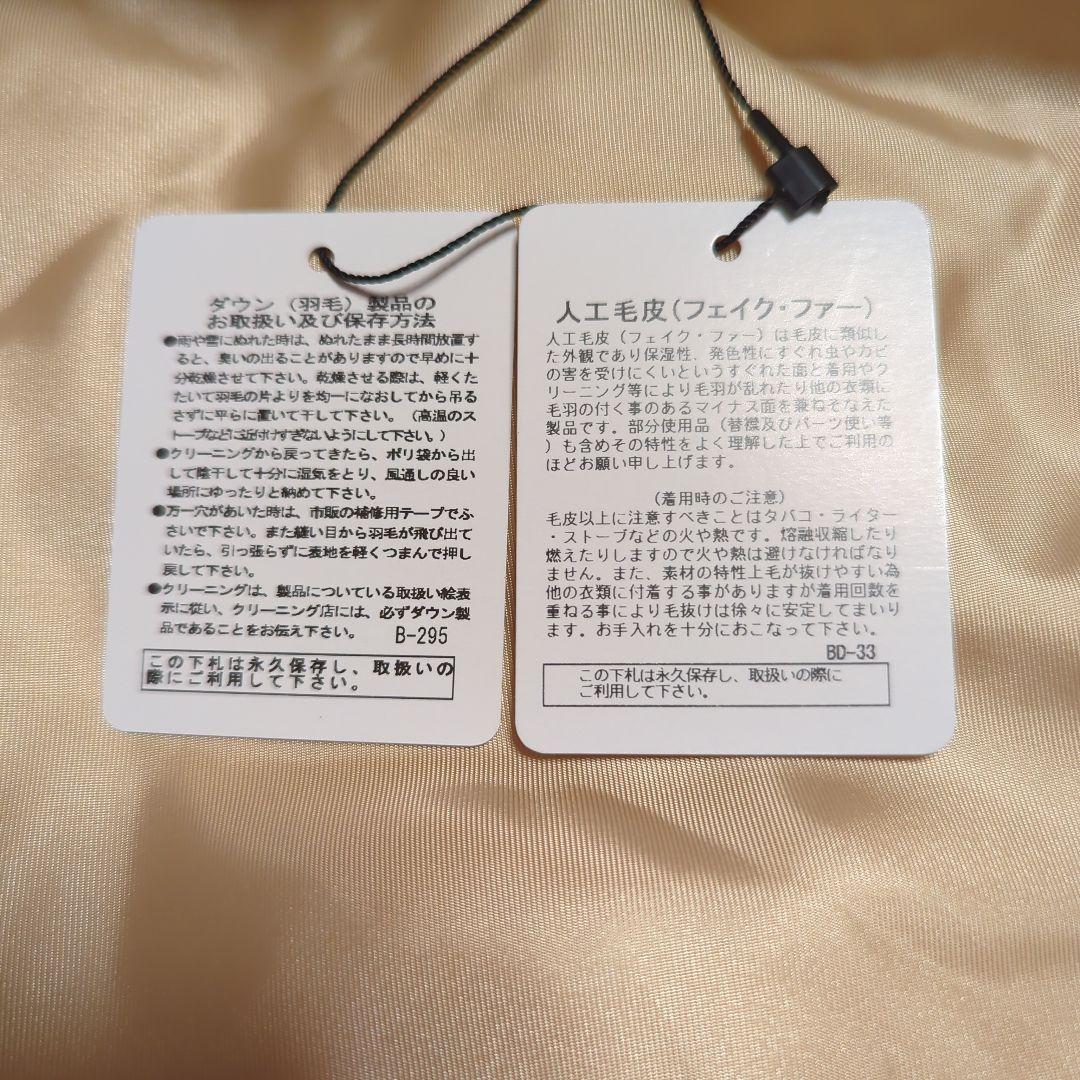 ダウン（羽毛）製品の
お取扱い及び保存方法
●雨や雪にぬれた時は、ぬれたまま長時間放置す
ると、臭いの出ることがありますので早めに十
分乾燥させて下さい。乾燥させる際は、軽くた
たいて羽毛の片よりを均一になおしてから吊る
さずに平らに置いて干して下さい。（高温のス
トーブなどに近付けすぎないようにして下さい。）
●クリーニングから戻ってきたら、ポリ袋から出
して陰干して十分に湿気をとり、風通しの良い
場所にゆったりと納めて下さい。
●万一穴があいた時は、市販の補修用テープでふ
さいで下さい。また縫い目から羽毛が飛び出て
いたら、引っ張らずに表地を軽くつまんで押し
戻して下さい。
●クリーニングは、製品についている取扱い絵表
示に従い、クリーニング店には、必ずダウン製
品であることをお伝え下さい。
B-295
この下札は永久保存し、取扱いの
際にご利用して下さい。
人工毛皮（フェイク・ファー）
人工毛皮（フェイク・ファー）は毛皮に類似し
た外観であり保湿性、発色性にすぐれ虫やカビ
の害を受けにくいというすぐれた面と着用やク
リーニング等により毛羽が乱れたり他の衣類に
毛羽の付く事のあるマイナス面を兼ねそなえた
製品です。部分使用品（替襟及びパーツ使い等
）も含めその特性をよく理解した上でご利用の
ほどお願い申し上げます。
（着用時のご注意）
毛皮以上に注意すべきことはタバコ・ライター
・ストーブなどの火や熱です。熔融収縮したり
燃えたりしますので火や熱は避けなければなり
ません。また、素材の特性上毛が抜けやすい為
他の衣類に付着する事がありますが着用回数を
重ねる事により毛抜けは徐々に安定してまいり
ます。お手入れを十分におこなって下さい。
BD-33
この下札は永久保存し、取扱いの際に
ご利用して下さい。